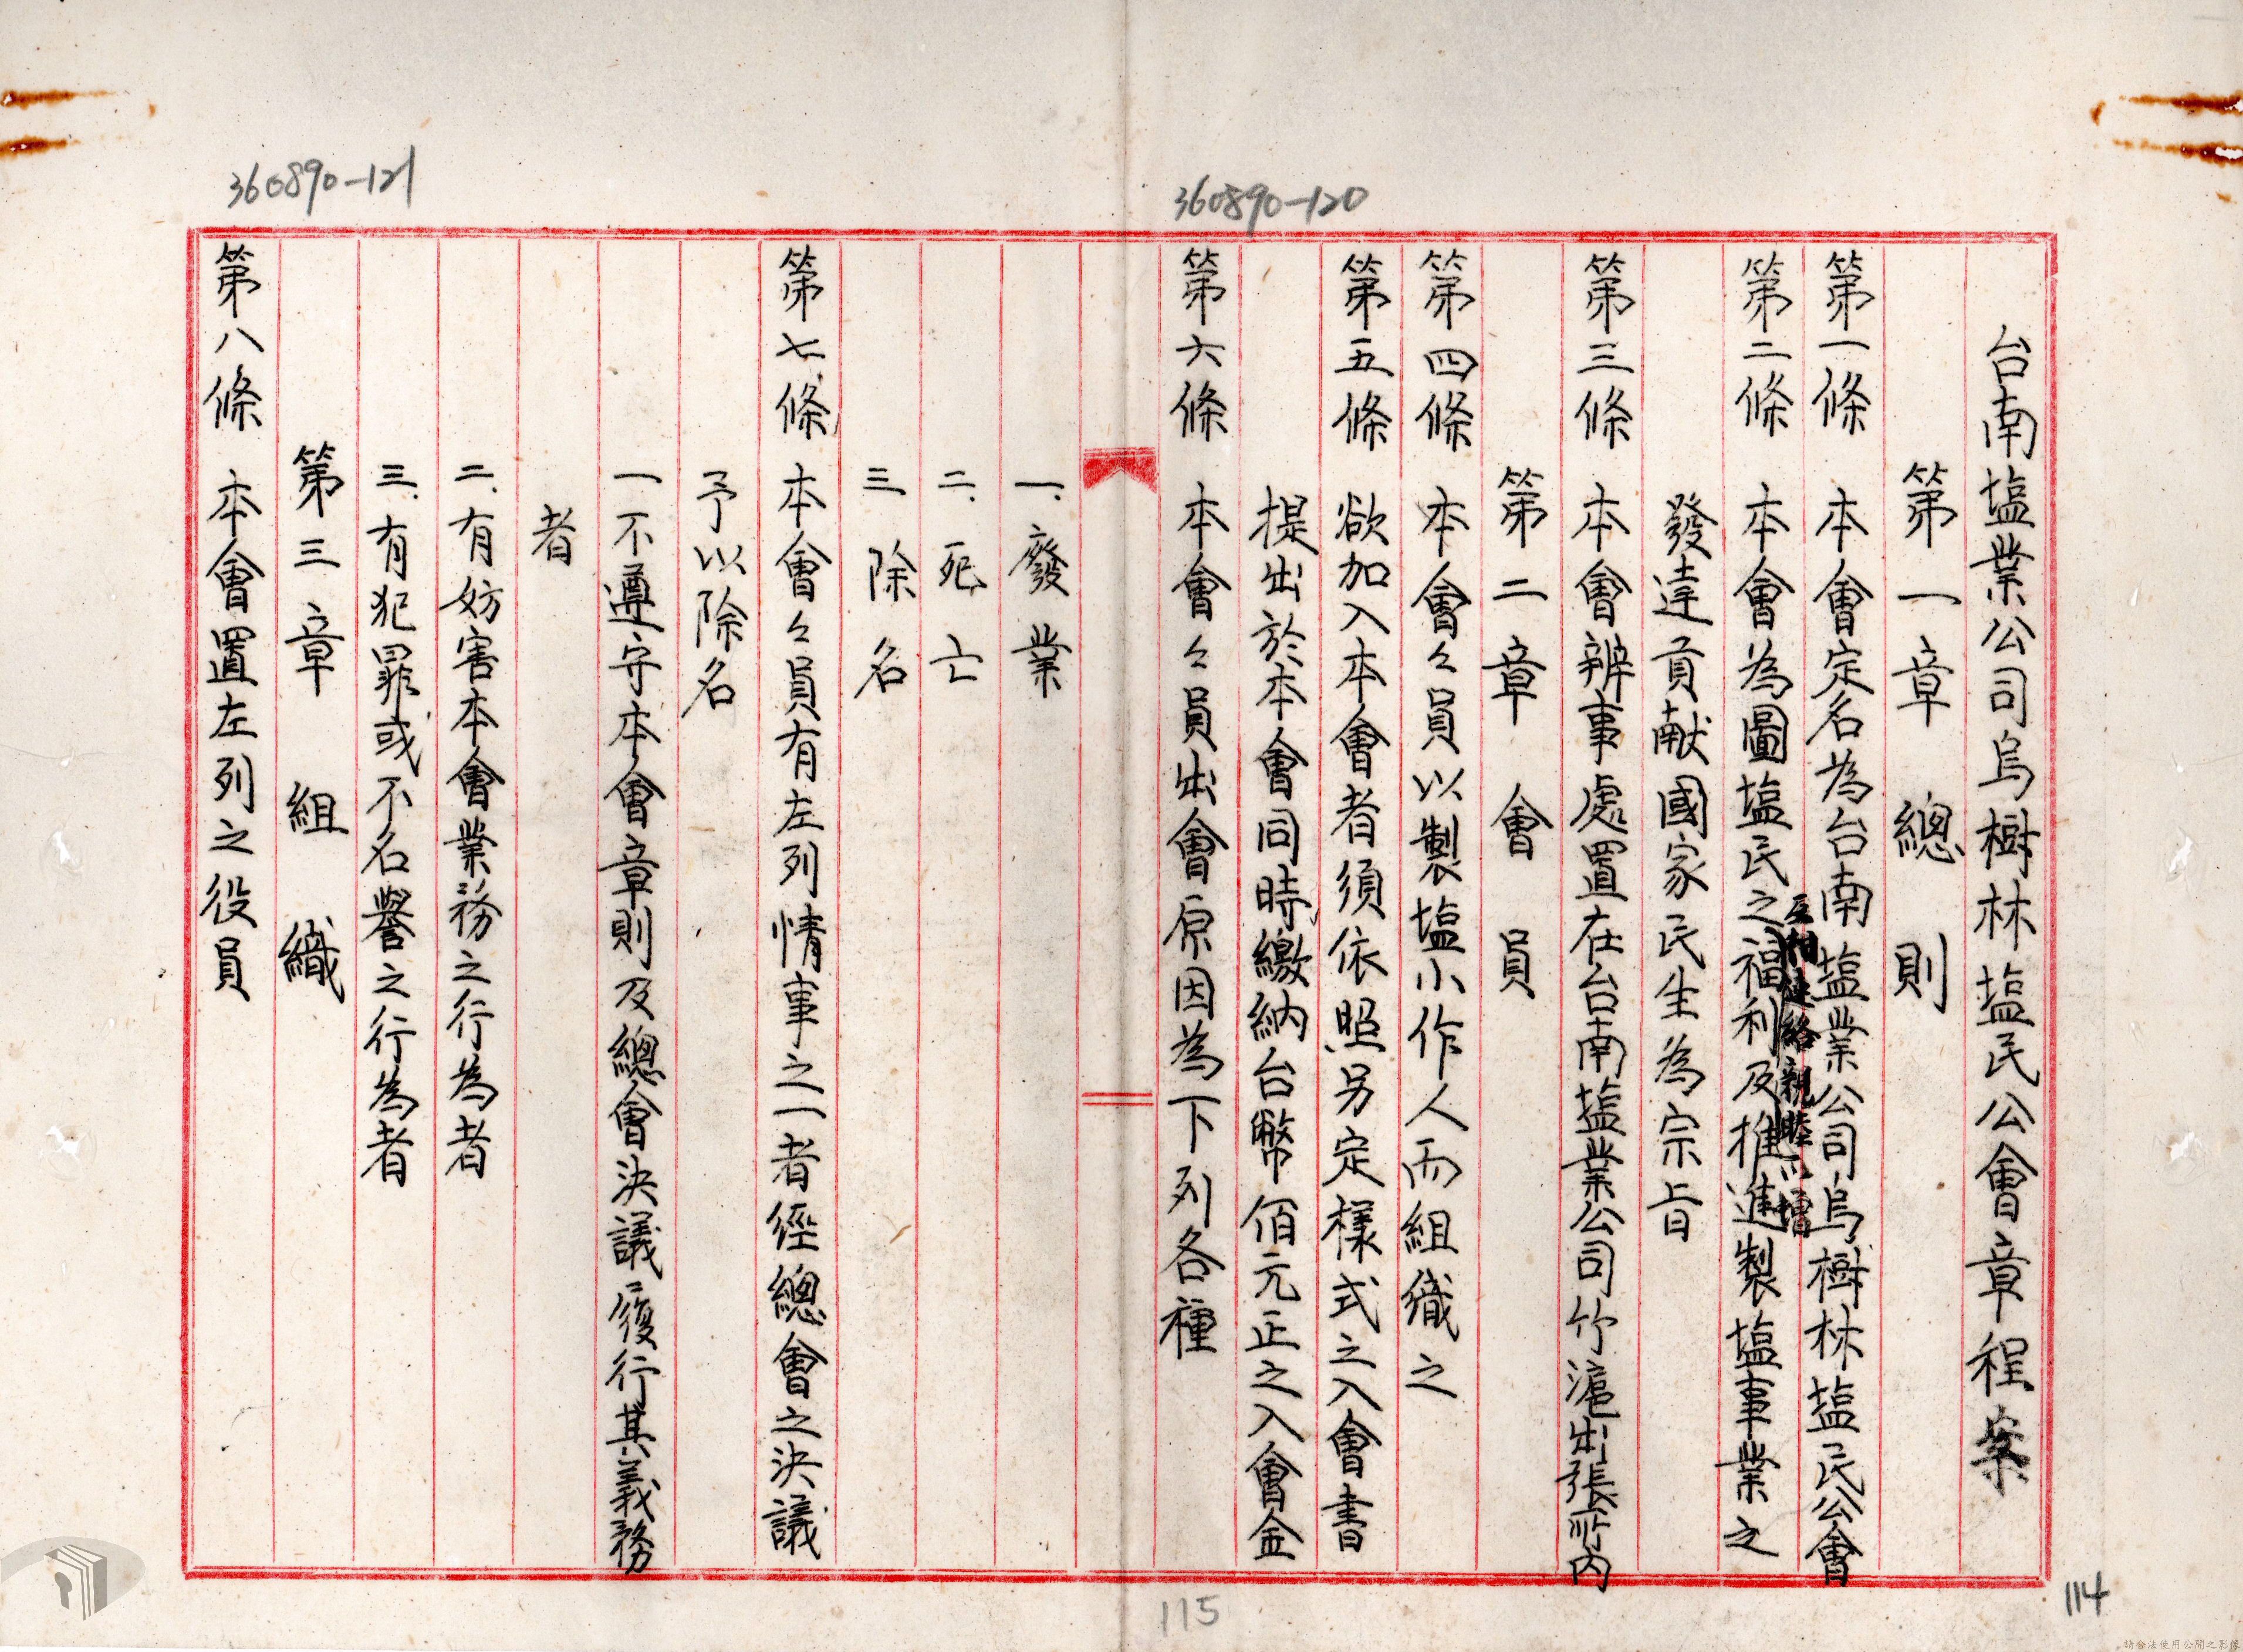 360890-120
台南塩業公司烏樹林塩民公會章程案
第一章 總則
第一條 本會定名為台南塩業公司烏樹林塩民公會
互相連絡親睦而增
第二條 本會為圖塩民之福利及推進製塩事業之
發達貢献國家民生為宗旨
第三條 本會辦事處置在台南塩業公司竹滬出張所內
第二章 會員
第四條 本會々員以製塩小作人而組織之
第五條 欲加入本會者須依照另定樣式之入會書
提出於本會同時繳納台幣佰元正之入會金
第六條 本會々員出會原因為下列各種
114
360890-121
一、廢業
二、死亡
三 除名
第七條 本會々員有左列情事之一者經總會之決議
予以除名
一 不遵守本會章則及總會決議履行其義務
者
二、有妨害本會業務之行為者
三、有犯罪或不名譽之行為者
第三章 組織
第八條 本會置左列之役員
115
請合法使用公開之影像